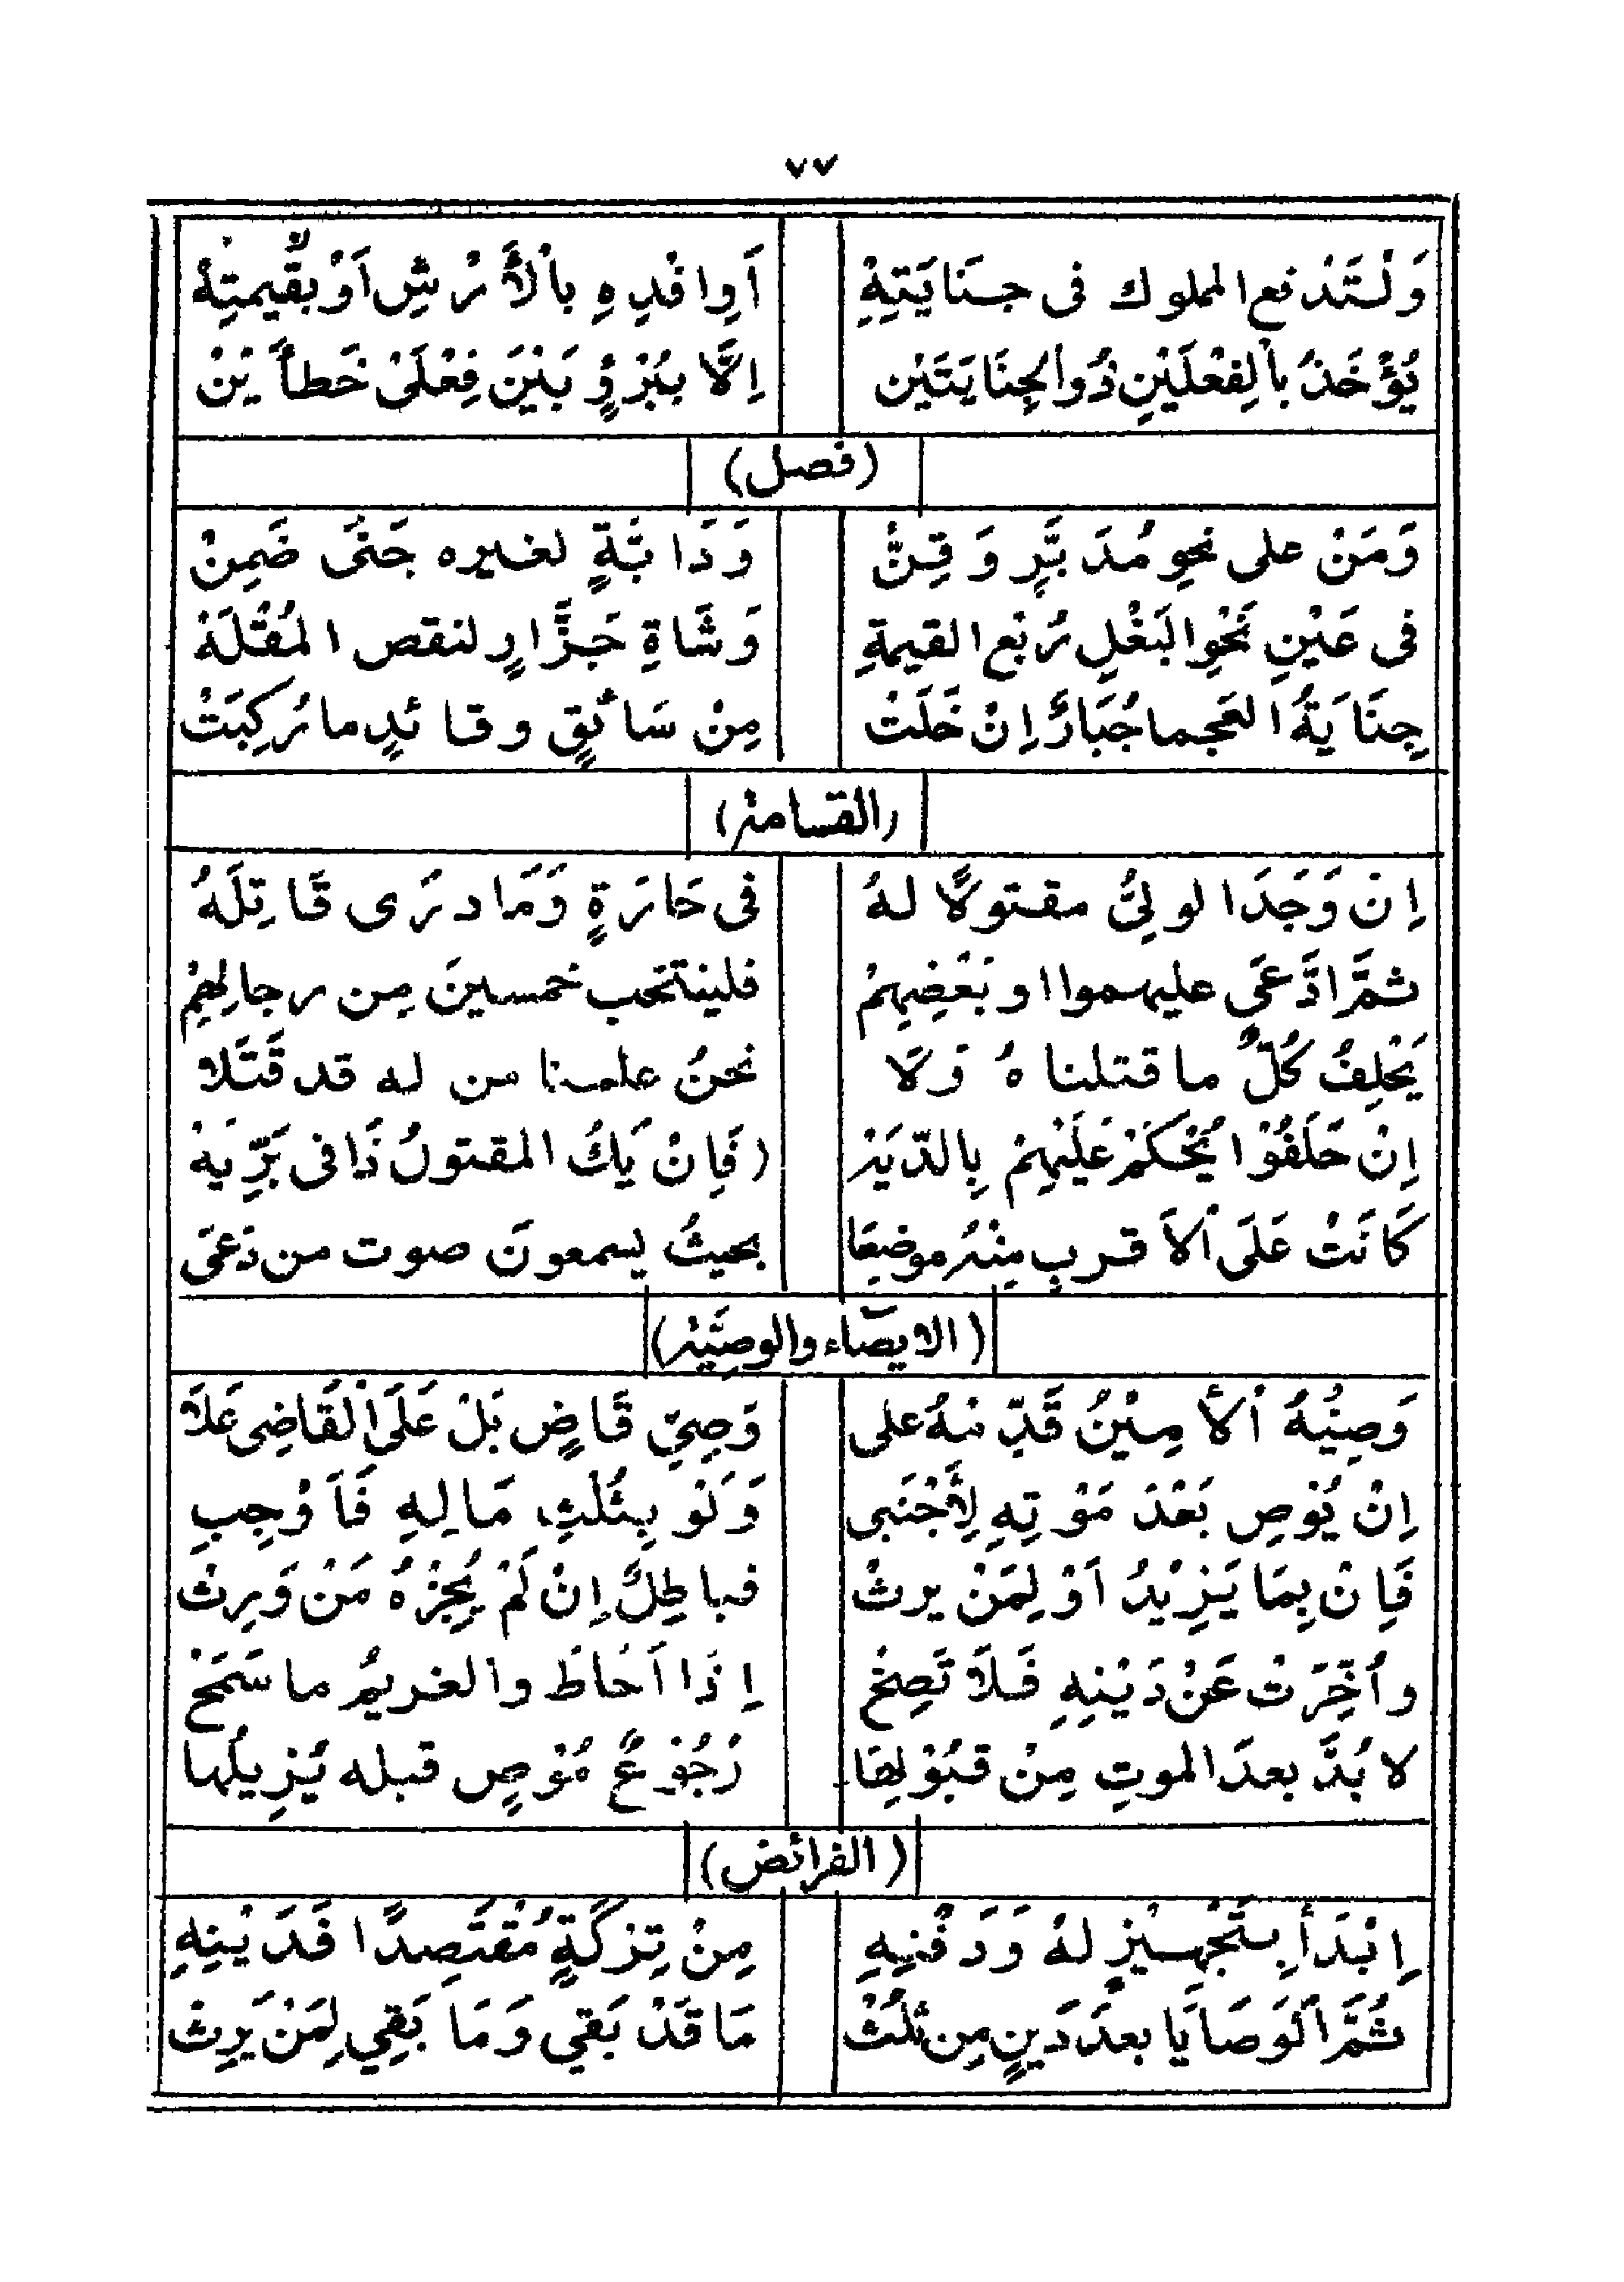 ٧٧
وَلْتَدْفع المملوك فى جنَايَتِهْ اَوِافْدِهِ بِالْأَرْشِ اَوْ بقِيمتِهْ
يُؤْخَذُ بِالفِعْلَيْنِ ذُو الجِنَايَتَيْن اِلَّا بِبُرْءٍ بَيْنَ فِعْلَىْ خَطأَيْنْ
(فصل)
وَمَنْ على نحوِ مُدَبَّرٍ وَقِنّْ وَدَابَّةٍ لغيره جَنَى ضَمِنْ
فى عَيْنِ نَحْوِ البَغْلِ رُبْع القيمةِ وَشَاةِ جَزَّارٍ لنقص المُقْلَهْ
جِنَايَةُ العجما جُبَارٌ اِنْ خَلَتْ مِنْ سَائقٍ وقائدٍ ما رُكِبَتْ
(القسامة)
اِنْ وَجَدَ الولِىُّ مقتولًا لهُ فى حَارَةٍ وَمَا درَى قَاتِلَهُ
ثمَّ ادَّعَى عليهموا او بَعْضِهِمْ فلينتخب خمسينَ مِن رجالِهِمِ
يَحْلِفُ كُلٌّ ما قتلناهُ وَلَا نحنُ علمنا من له قد قَتَلا
اِنْ حَلَفُوْا يُحْكَمْ عَلَيْهِمْ بِالدّيَهْ (فَاِنْ يَكُ المقتولُ ذَا فى بَرِّيَهْ
كَانَتْ عَلَى الْاَقربِ مِنْهُ موضِعَا بحيثُ يسمعونَ صوت من دَعَى
(الايصاء والوصيّة)
وَصِيُّهُ الْأَمِيْنُ قَدِّمْهُ على وَصِيِّ قَاضٍ بَلْ عَلَى الْقَاضِى عَلَا
اِنْ يُوْصِ بَعْدَ مَوْتِهِ لِأَجْنَبِى وَلَوْ بِثُلْثِ مَالِهِ فَاَوْجِبِ
فَاِنْ بِمَا يَزِيْدُ اَوْ لِمَنْ يرثْ فباطِلٌ اِنْ لَمْ يُجِزْهُ مَنْ وَرِثْ
وأُخِّرَتْ عَنْ دَيْنِهِ فَلَا تَصِحْ اِذَا اَحَاطَ والغريمُ ما سَمَحْ
لا بُدَّ بعدَ الموتِ مِنْ قبُوْلِهَا رُجُوْعُ مُوْصٍ قبله يُزِيلُها
(الفرائض)
اِبْدَأْ بِتَجْهِيْزٍ لهُ وَدَفْنِهِ مِنْ تِرْكَةٍ مُقْتَصِدًا فَدَيْنِهِ
ثُمَّ الْوَصَايَا بعدَ دَينٍ مِن ثلُثْ مَا قَدْ بَقِي وَمَا بَقِي لِمَنْ يَرِثْ